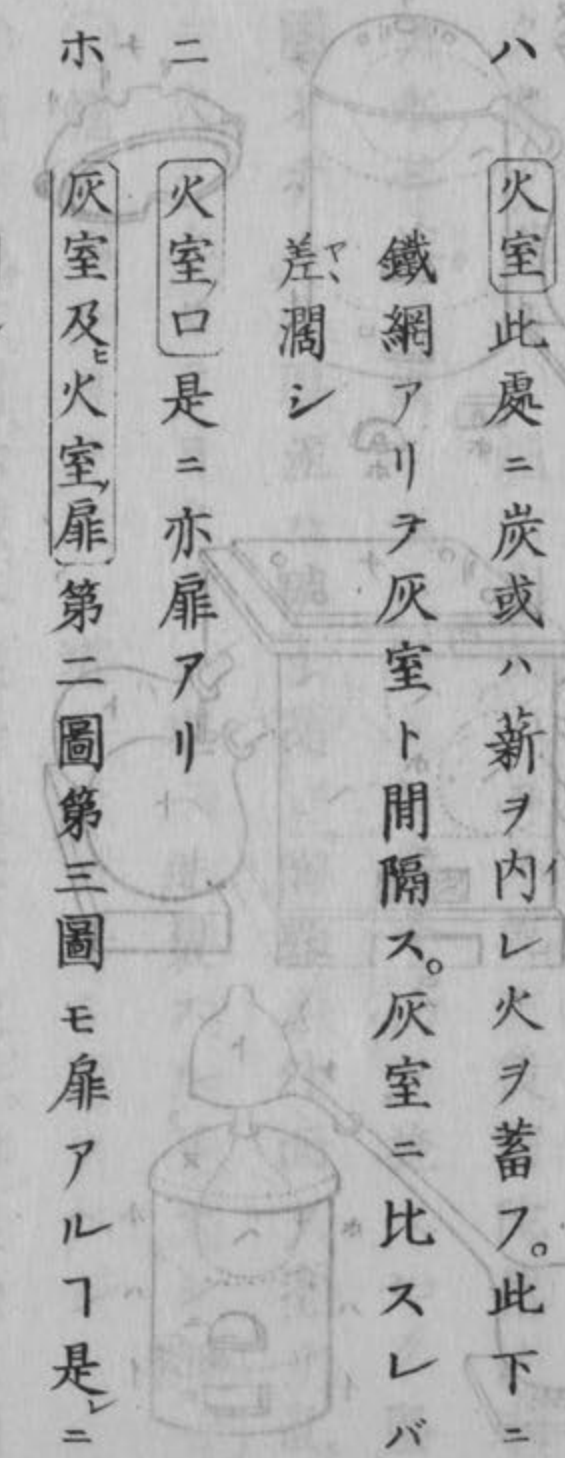 ハ 火室此處ニ炭或ハ薪ヲ内イレ火ヲ蓄フ。此下ニ
鐵網アリヲ灰室ト間隔ス。灰室ニ比スレバ
差ヤヽ濶シ
ニ 火室口是ニ亦扉アリ
ホ 灰室及ヒ火室ノ扉第二圖第三圖モ扉アルヿ是レニ